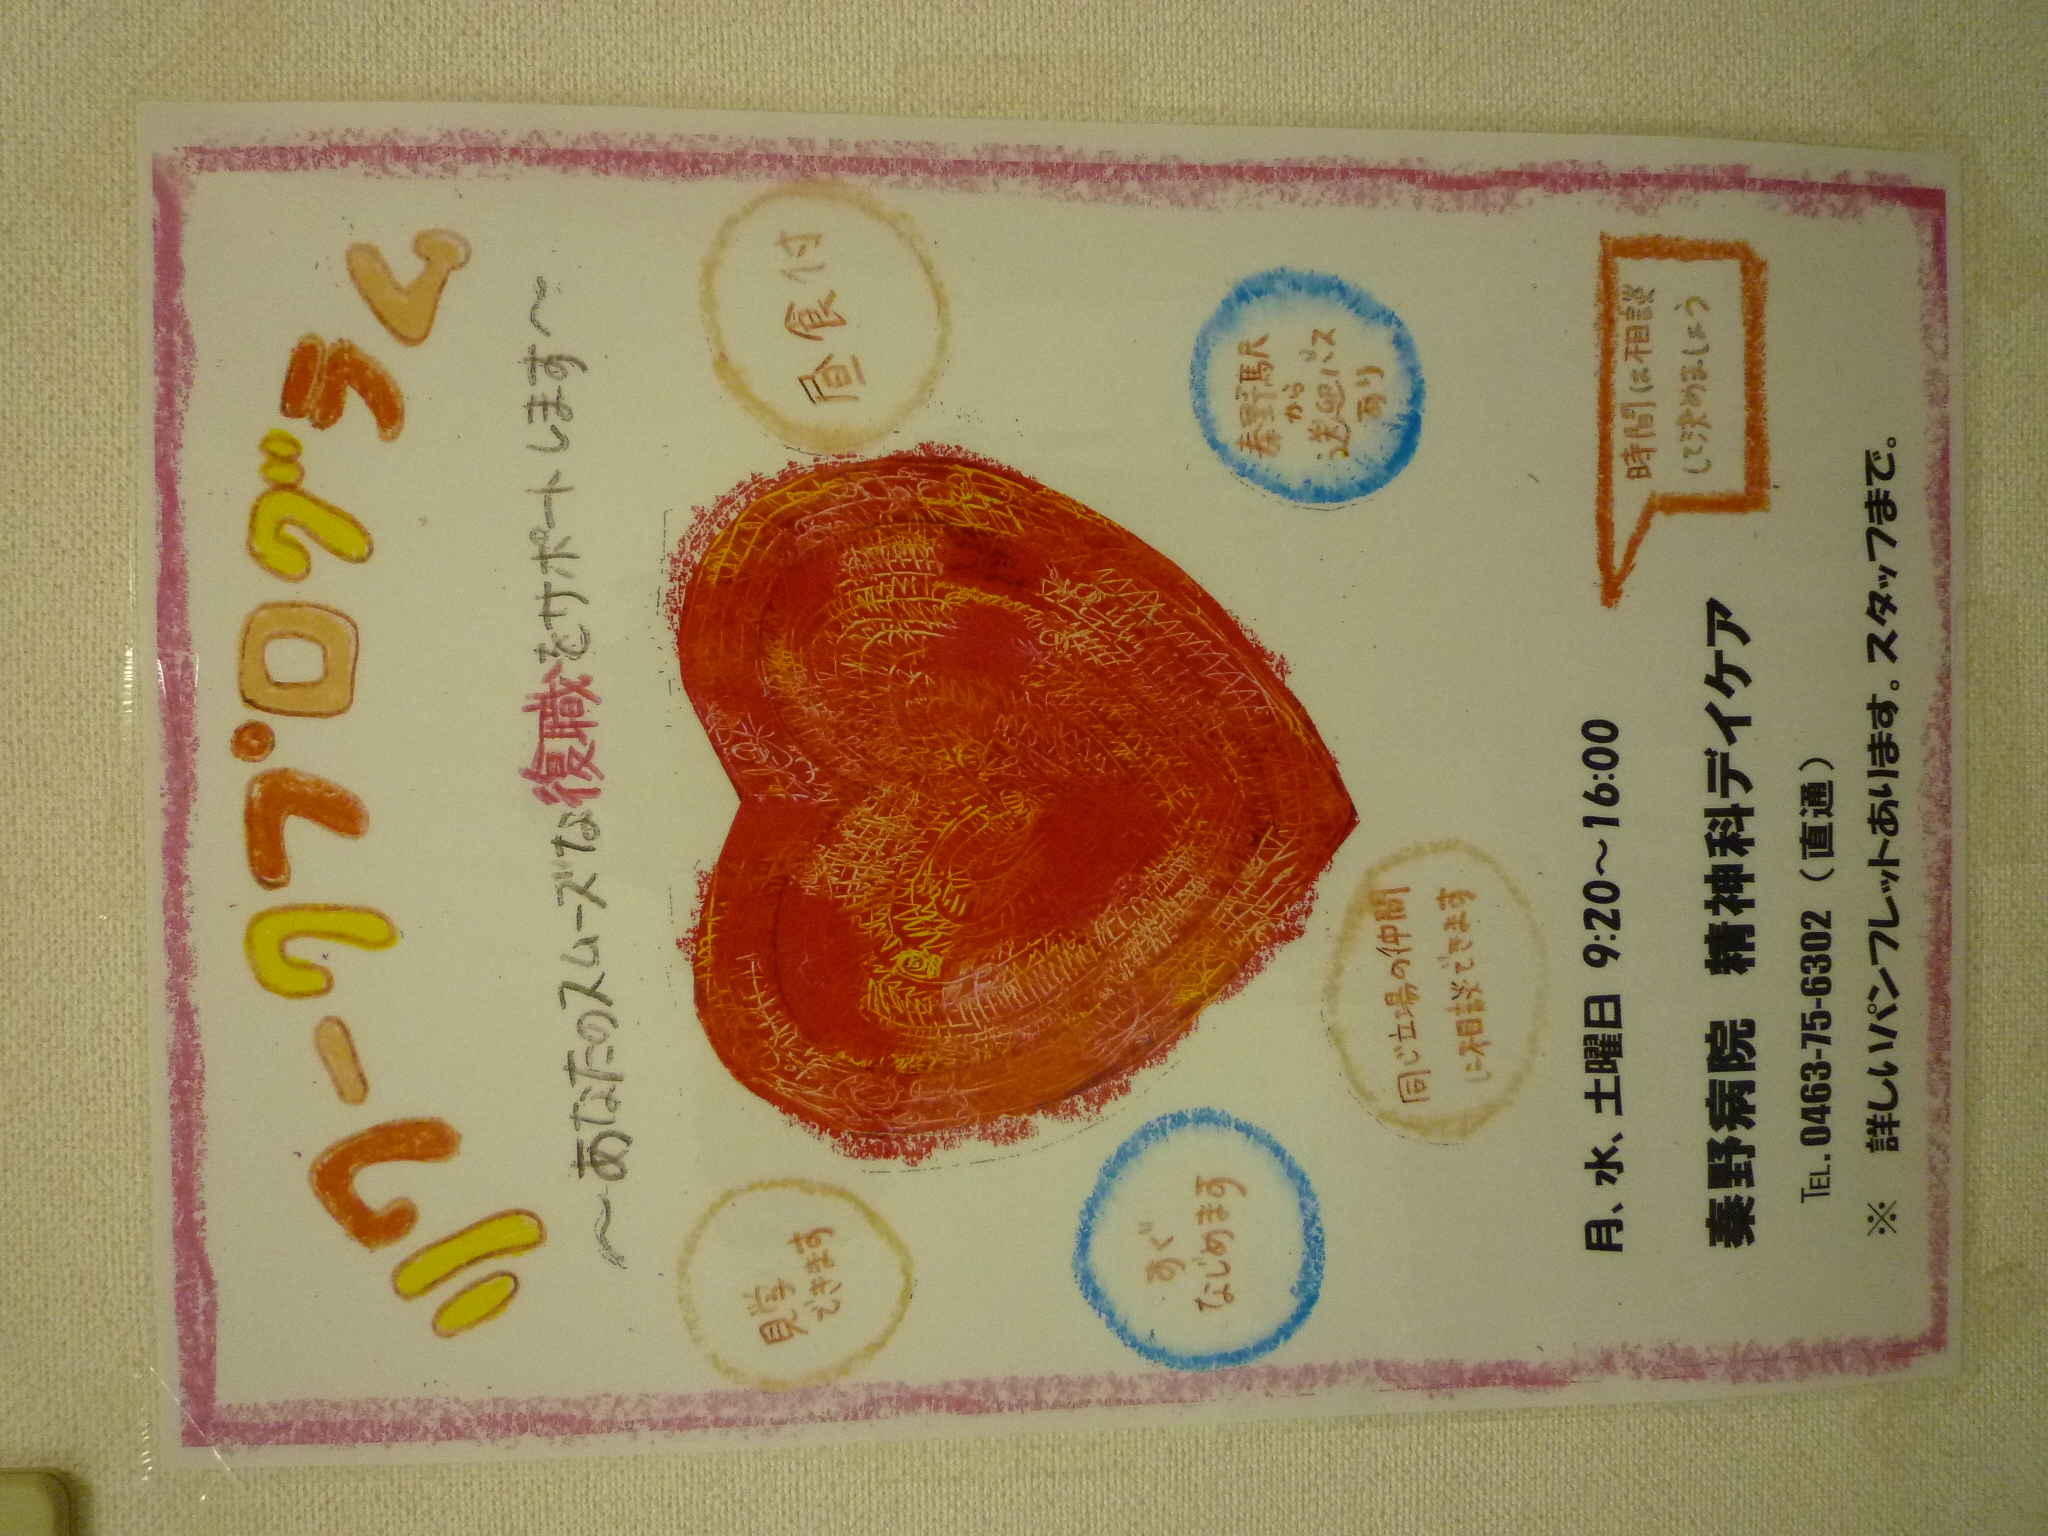 リワークプログラム
～あなたのスムーズな復職をサポートします～
昼食付
見学
できます
秦野駅
から
送迎バス
あり
すぐ
なじめます
同じ立場の仲間
に相談できます
時間は相談
して決めましょう
月、水、土曜日 9:20～16:00
秦野病院 精神科デイケア
TEL.0463-75-6302（直通）
※ 詳しいパンフレットあります。スタッフまで。